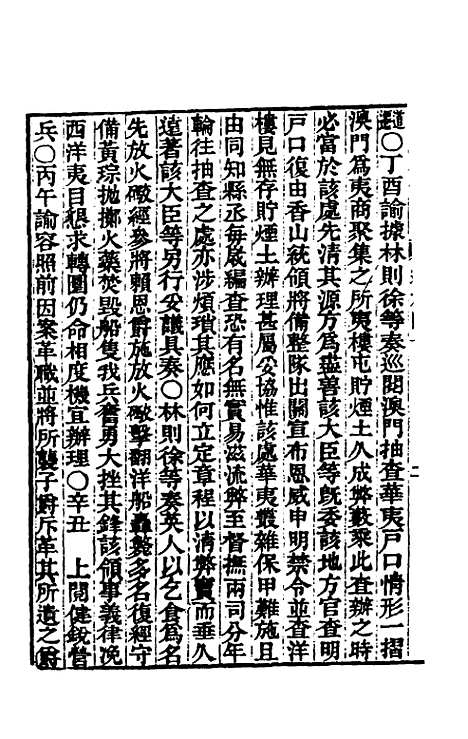 道○丁酉諭據林則徐等奏巡閱澳門抽查華夷戸口情形一摺
澳門爲夷商聚集之所夷樓屯貯煙土久成弊藪乘此查辦之時
必當於該處先清其源方爲盡善該大臣等旣委該地方官查明
戸口復由香山統領將備整隊出關宣布恩威申明禁令並查洋
樓見無存貯煙土辦理甚屬妥協惟該處華夷叢雜保甲難施且
由同知縣丞每歲編查恐有名無實易滋流弊至督撫兩司分年
輪往抽查之處亦涉煩瑣其應如何立定章程以清弊竇而垂久
遠著該大臣等另行妥議具奏○林則徐等奏英人以乞食爲名
先放火礮經參將賴恩爵施放火礮擊翻洋船轟斃多名復經守
備黃琮拋擲火藥焚毀船隻我兵奮勇大挫其鋒該領事義律浼
西洋夷目懇求轉圜仍命相度機宜辦理○辛丑　上閱健銳營
兵○丙午諭容照前因案革職並將所襲子爵斥革其所遺之爵